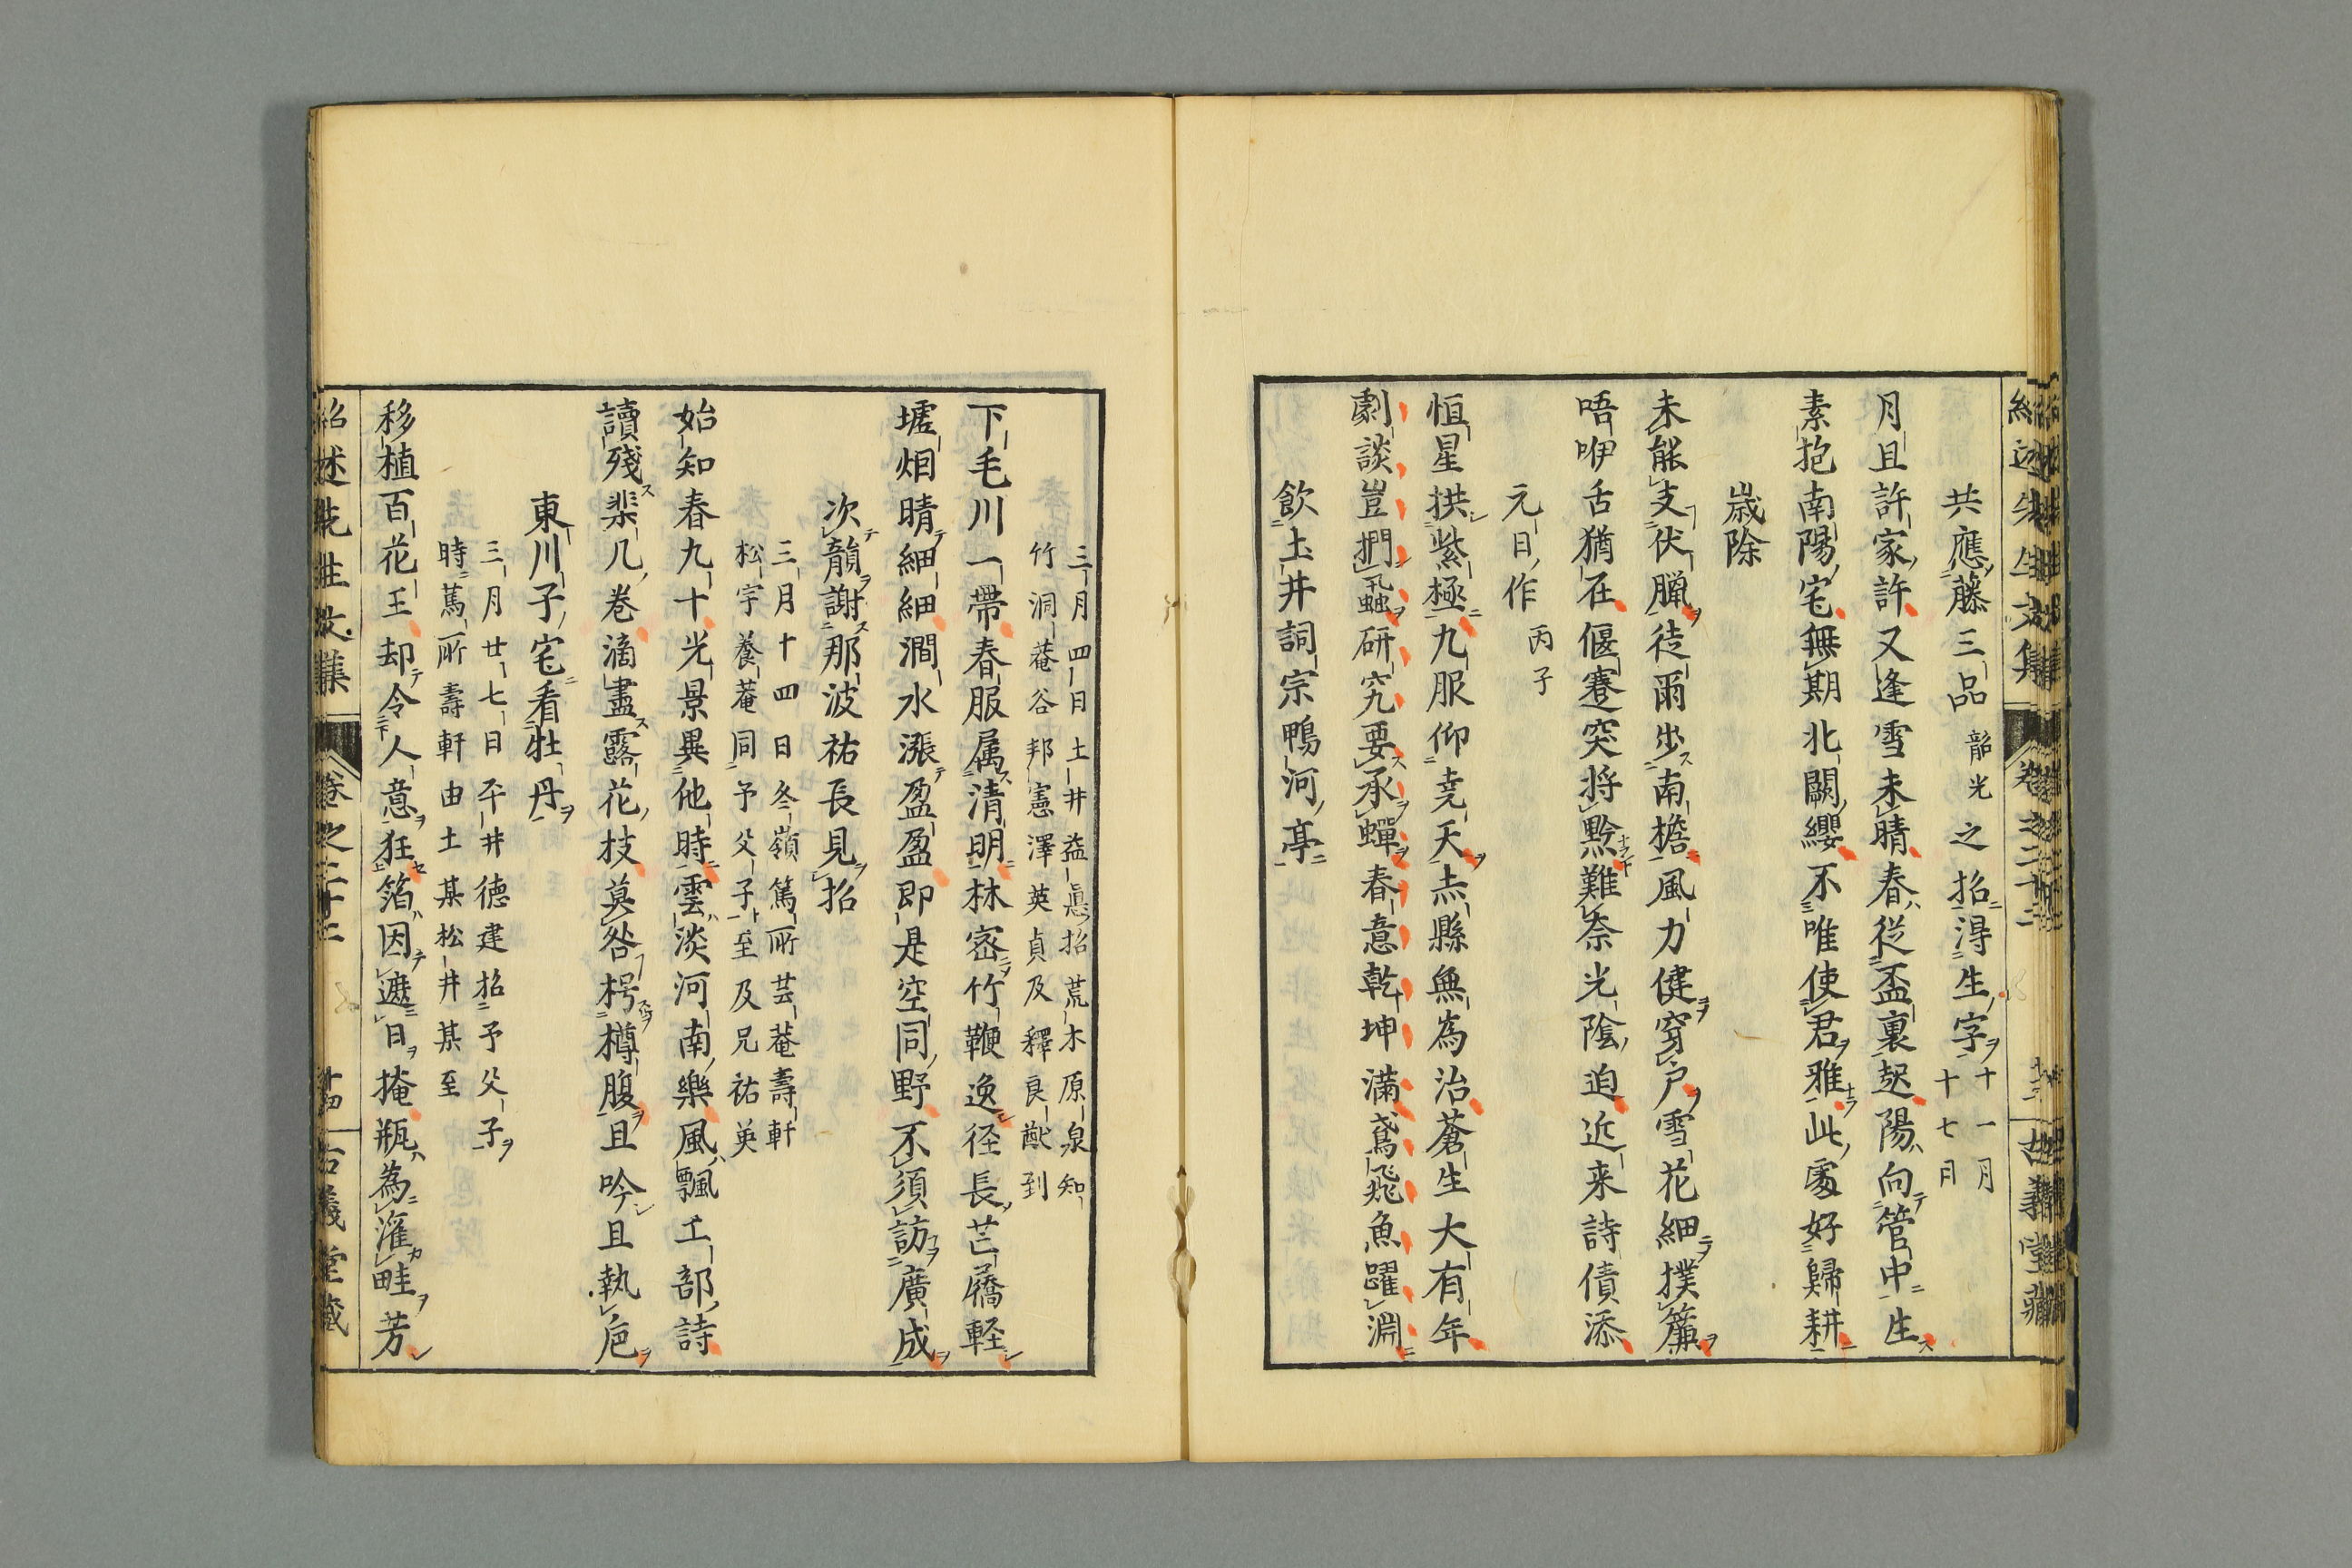 共應藤三品韶光之招得生字十一月
十七月
月且許家許又逢雪未晴春從盃裏起陽向管中生
素抱南陽宅無期北闕纓不唯使君雅此處好歸耕
歲除
未能支伏臘徒爾步南檐風力健穿戶雪花細撲簾
唔咿舌猶在偃蹇突將黔難奈光陰迫近来詩債添
元日作丙子
恒星拱紫極九服仰堯天赤縣無為治蒼生大有年
劇談豈捫虱研究要承蟬春意乾坤滿鳶飛魚躍淵
飲土井詞宗鴨河亭
三月四日土井益眞招荒木原泉知
竹洞菴谷邦憲澤英貞及釋良猷到
下毛川一帶春服属清明林密竹鞭逸径長芒屩軽
墟烟晴細細澗水漲盈盈即是空同野不須訪廣成
次韻謝那波祐長見招
三月十四日冬嶺篤所芸菴壽軒
松宇養菴同予父子至及兄祐英
始知春九十光景異他時雲淡河南樂風飄工部詩
讀殘棐几卷滴盡露花枝莫咎枵樽腹且吟且執巵
東川子宅看牡丹
三月廿七日平井德建招予父子
時篤所壽軒由土某松井某至
移植百花王却令人意狂箔因遮日掩瓶為滙畦芳
紹述先生文集 卷之二十二 古義堂藏